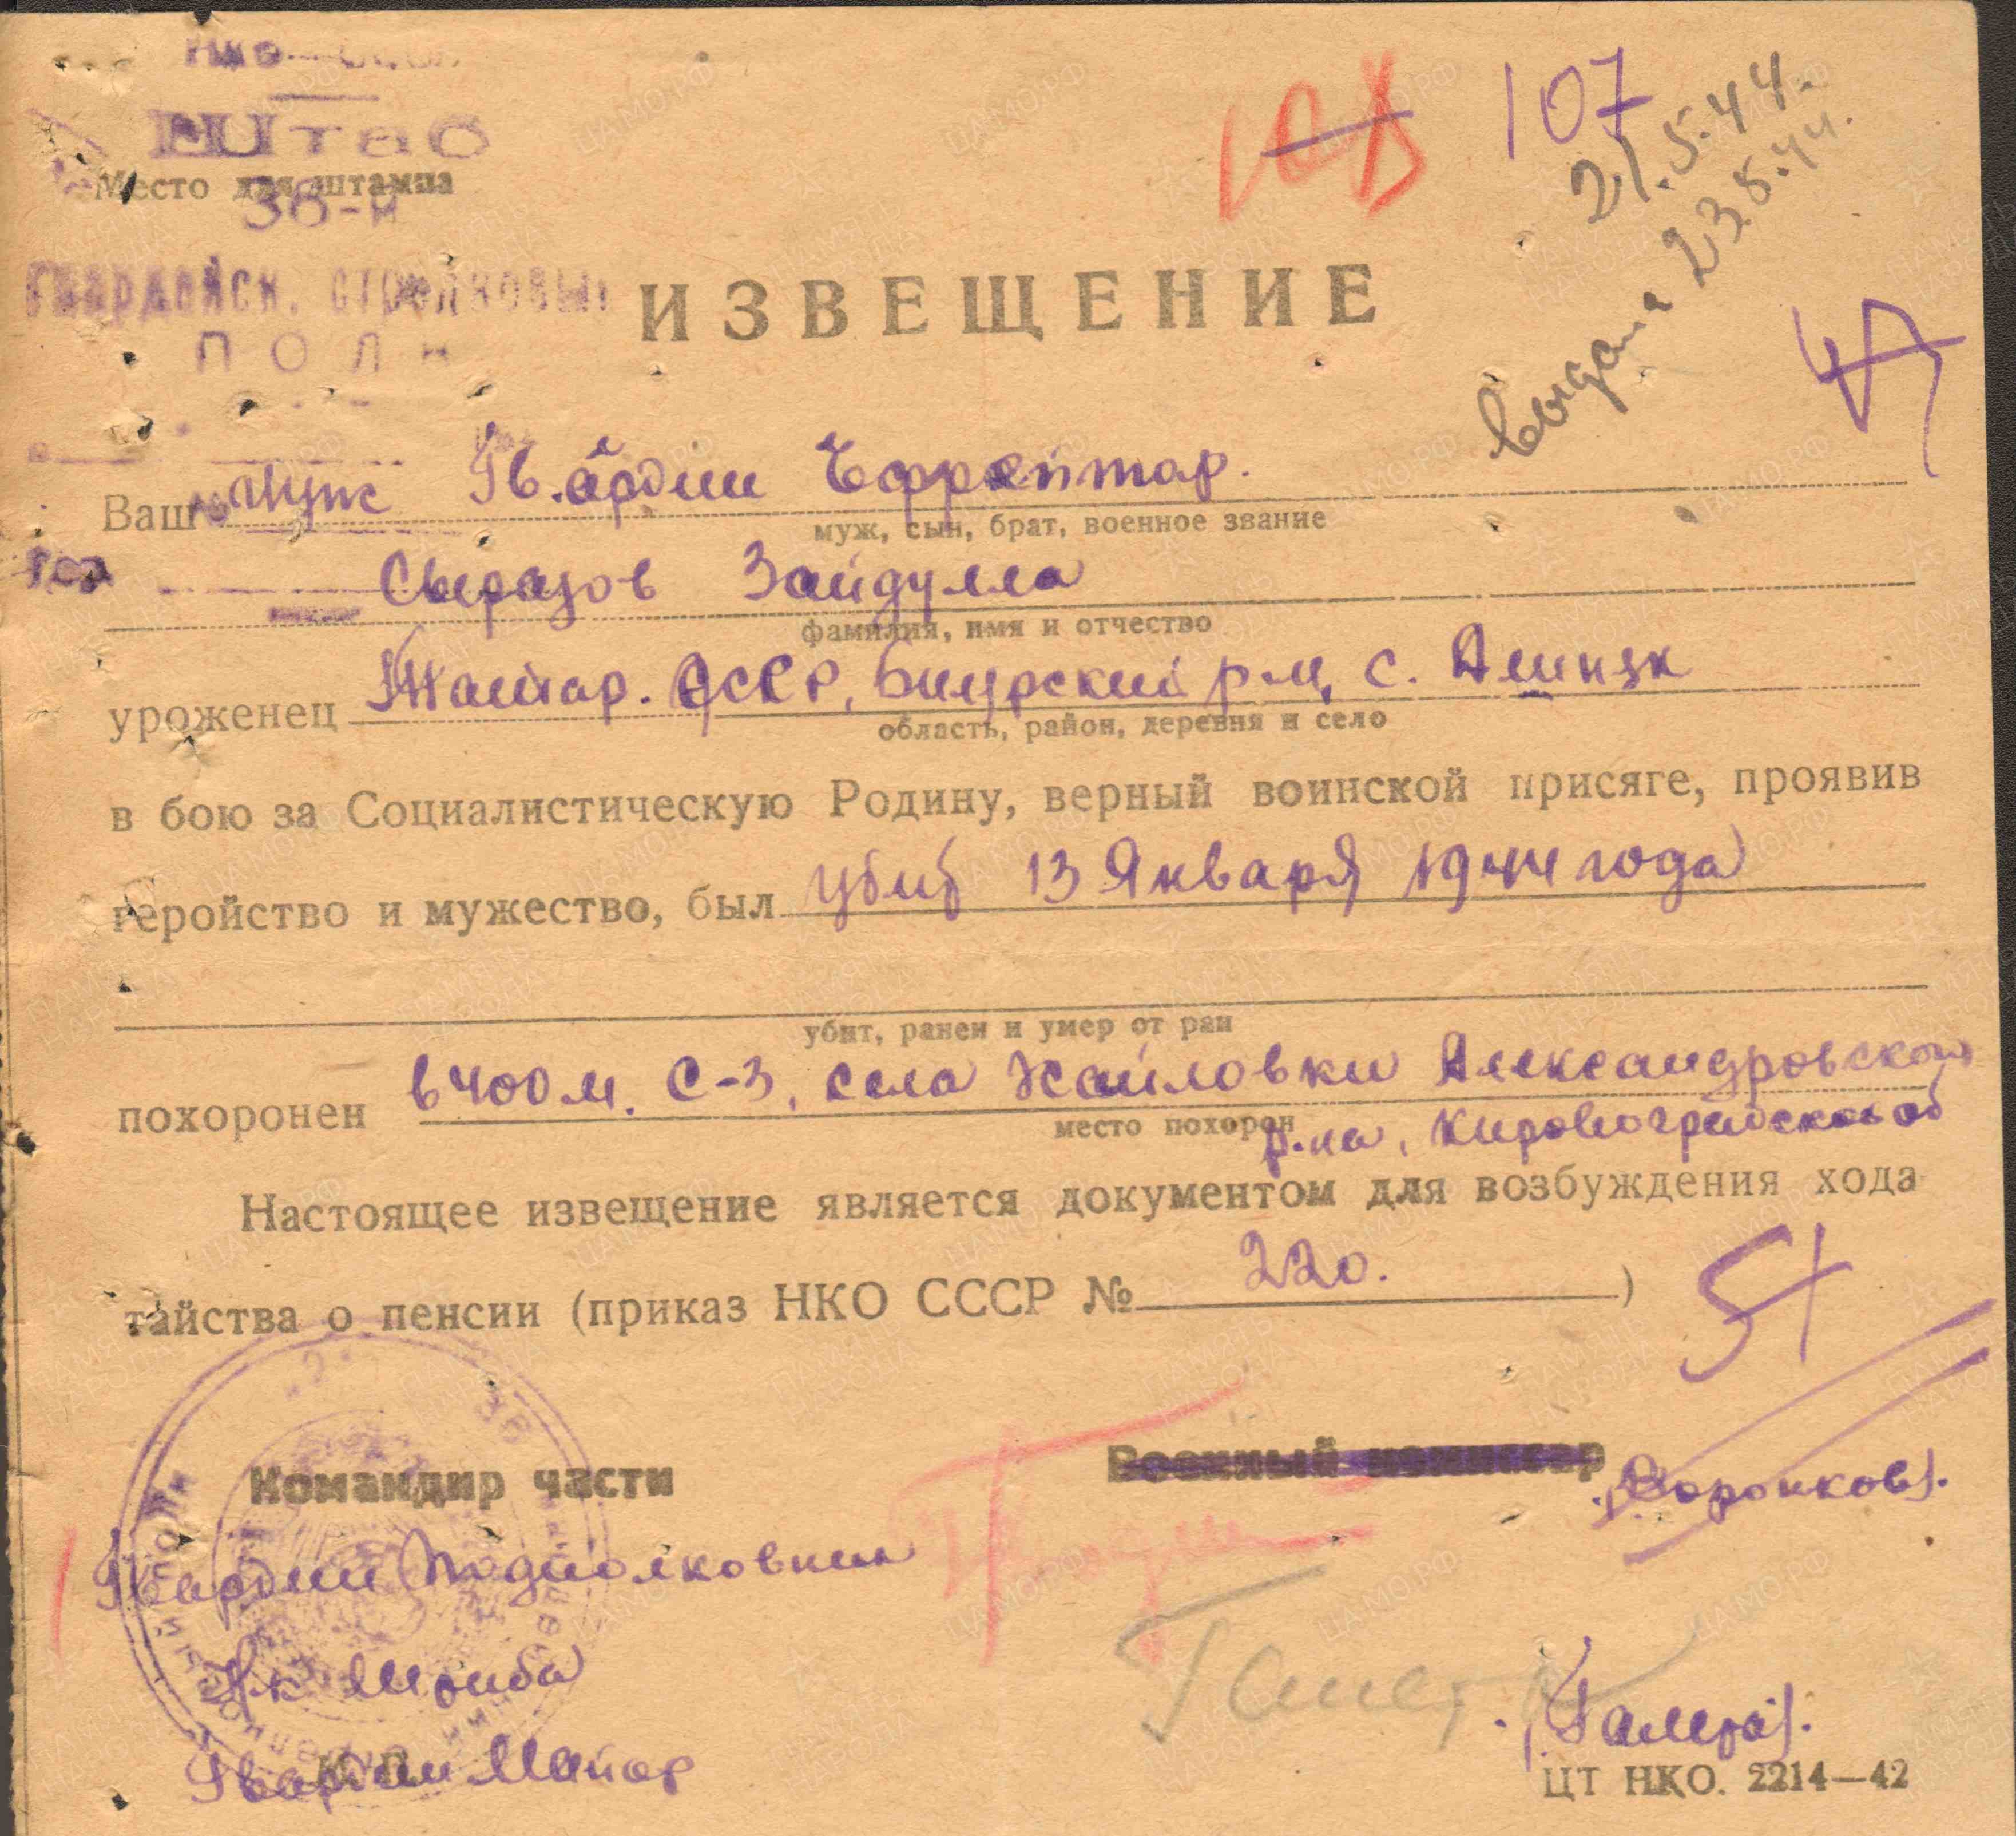 НКО
Штаб
Место для штампа
36-й
Гвардейск. стрелковый
ПОЛК
107
21.5.44.
выдана 23.5.44.
ИЗВЕЩЕНИЕ
Ваш муж Гв.ардии Ефрейтор.
муж, сын, брат, военное звание
Сыразов Зайдулла
фамилия, имя и отчество
уроженец Татар. АССР, р-н, с.
область, район, деревня и село
в бою за Социалистическую Родину, верный воинской присяге, проявив
геройство и мужество, был убит 13 Января 1944 года
убит, ранен и умер от ран
похоронен в 400 м. С-З. села Александровского
место похорон р-на, Кировоградской об
Настоящее извещение является документом для возбуждения хода
тайства о пенсии (приказ НКО СССР № 220. )
54
Командир части Военный комиссар
Гвардии Подполковник (Воронков).
Нк Штаба
Гвардии Майор
М. П.
ЦТ НКО. 2214—42